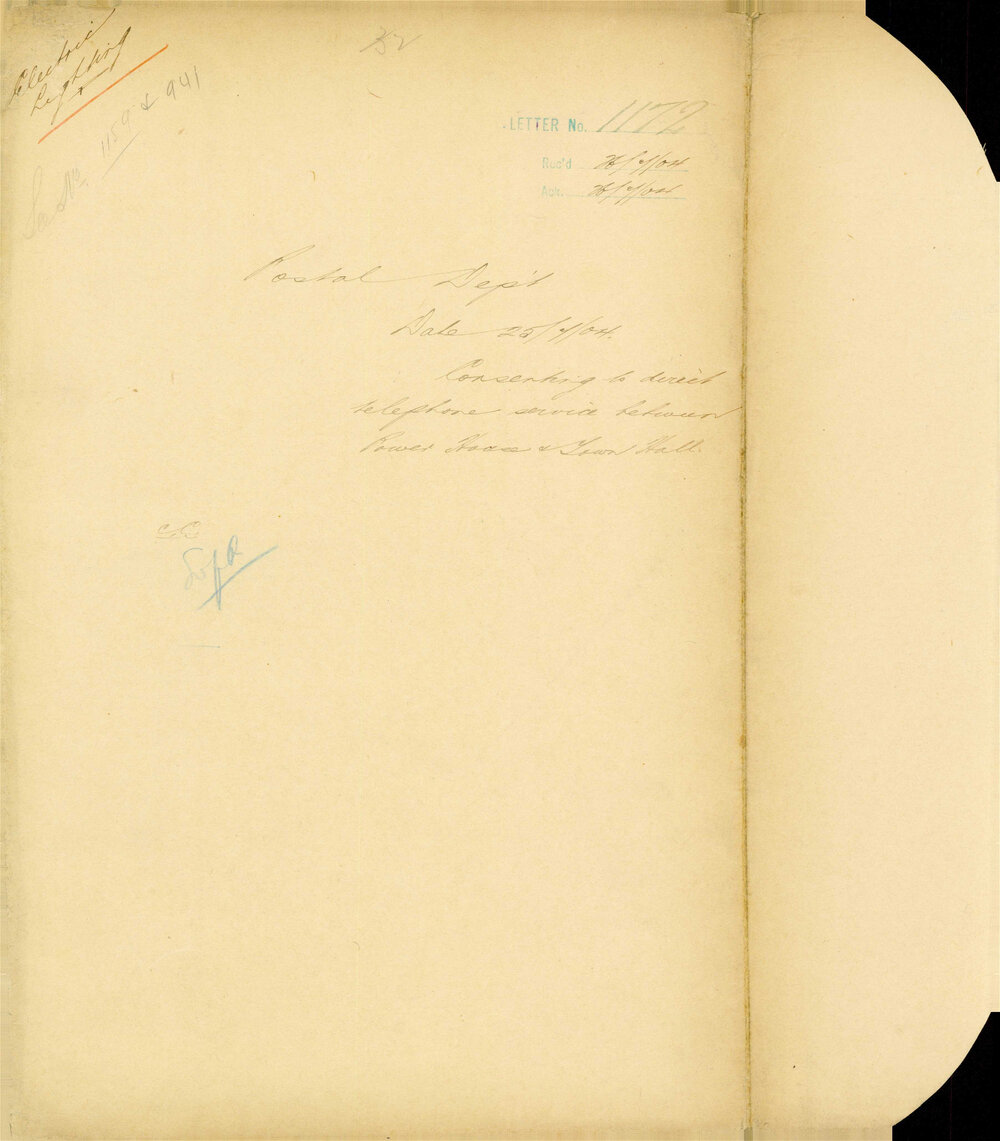 Electric
Lighting
See No. 1159 & 941
LETTER No. 1172
Rec'd 26/7/04
Ack. 26/7/04
Postal Dep't
Date 25/7/04.
Consenting to direct
telephone service between
Power House & Town Hall.